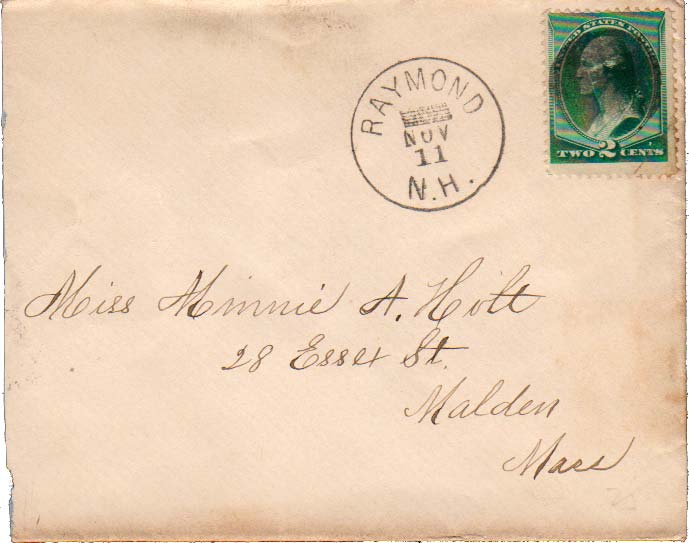 RAYMOND
NOV
11
N.H.
UNITED STATES POSTAGE
TWO 2 CENTS
Miss Minnie A. Holt
28 Essex St.
Malden
Mass